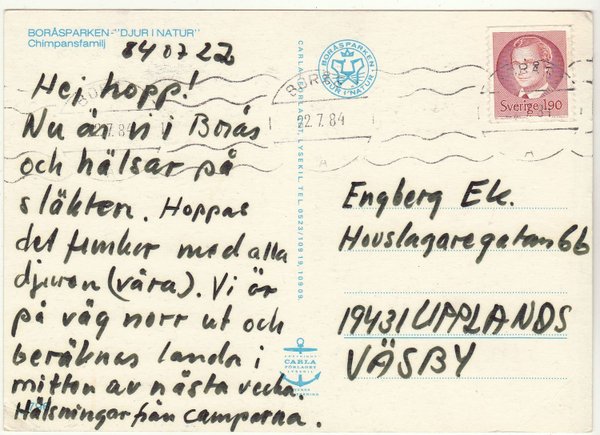 BORÅSPARKEN-"DJUR I NATUR"
Chimpansfamilj
840722
Hej hopp!
Nu är vi i Borås
och hälsar på
släkten. Hoppas
det funkar med alla
djuren (våra). Vi är
på väg norr ut och
beräknas landa i
mitten av nästa vecka.
Hälsningar från camparna.
CARLA-FÖRLAGET, LYSEKIL, TEL. 0523/109 19, 109 09.
BORÅSPARKEN
DJUR I NATUR
COPYRIGHT
CARLA
FÖRLAGET
LYSEKIL
BORÅS
22.7.84
A
BORÅS
22.7.84
A
Sverige 190
Engberg Ek.
Hovslagaregatan 66
19431 UPPLANDS
VÄSBY